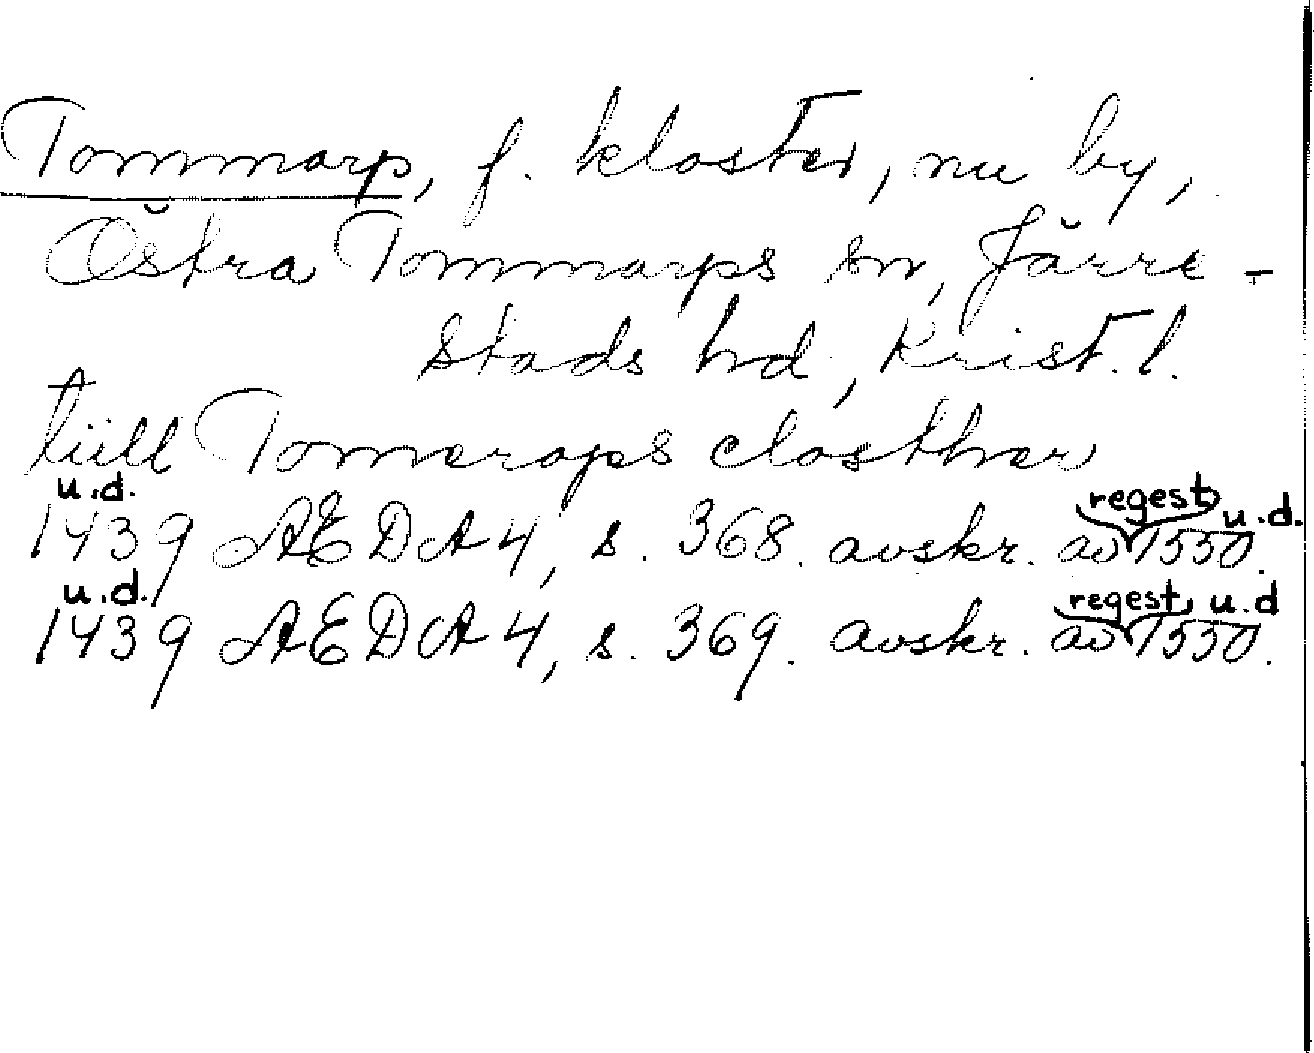 Tommarp, f. kloster, nu by,
Östra Tommarps sn, Järre-
stads hd, Krist. l.
tiill Tomerops closther
u.d.
1439 AEDA 4, s. 368. avskr. av regest u.d. 1550.
u.d.
1439 AEDA 4, s. 369. avskr. av regest u.d 1550.